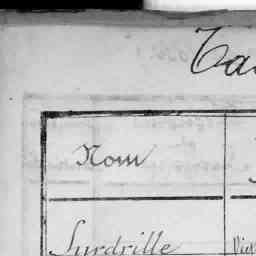 Ta
Nom
Surdrille